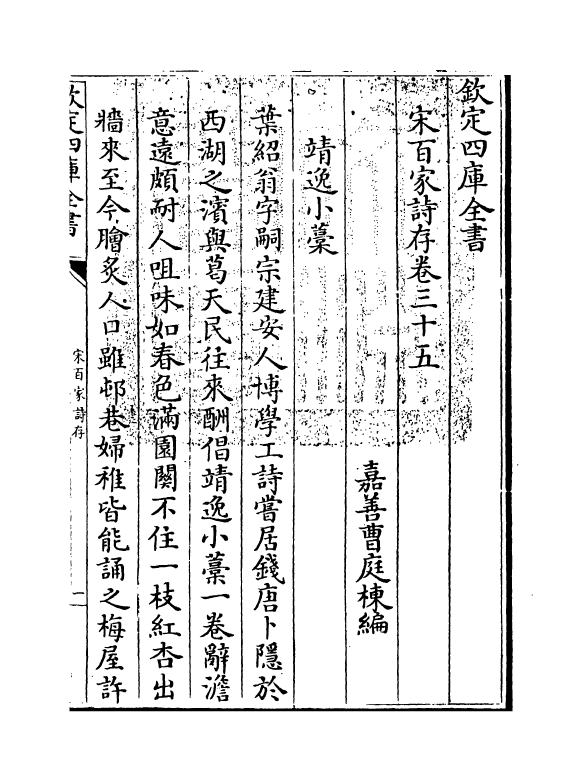 欽定四庫全書
宋百家詩存卷三十五
嘉善曹庭棟編
靖逸小藁
葉紹翁字嗣宗建安人博學工詩嘗居錢唐卜隱於
西湖之濱與葛天民往來酬倡靖逸小藁一卷辭澹
意遠頗耐人咀味如春色滿園關不住一枝紅杏出
牆來至今膾炙人口雖邨巷婦稚皆能誦之梅屋許
欽定四庫全書
宋百家詩存